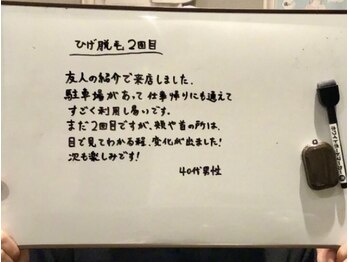 ひげ脱毛2回目
友人の紹介で来店しました。
駐車場があって仕事帰りにも通えて
すごく利用し易いです。
まだ2回目ですが、頬や首の所は、
目で見てわかる程、変化が出ました!
次も楽しみです!
40代男性